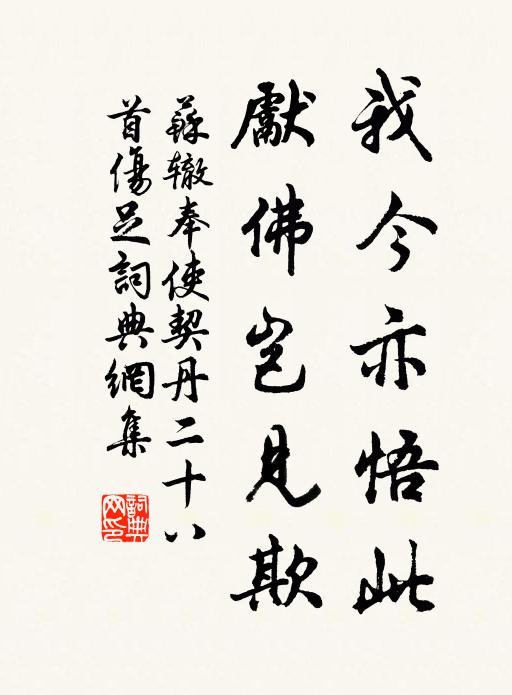 我今亦悟此
獻佛豈見欺
蘇辙奉使契丹二十八
首傷足詞典網集
詞典網印